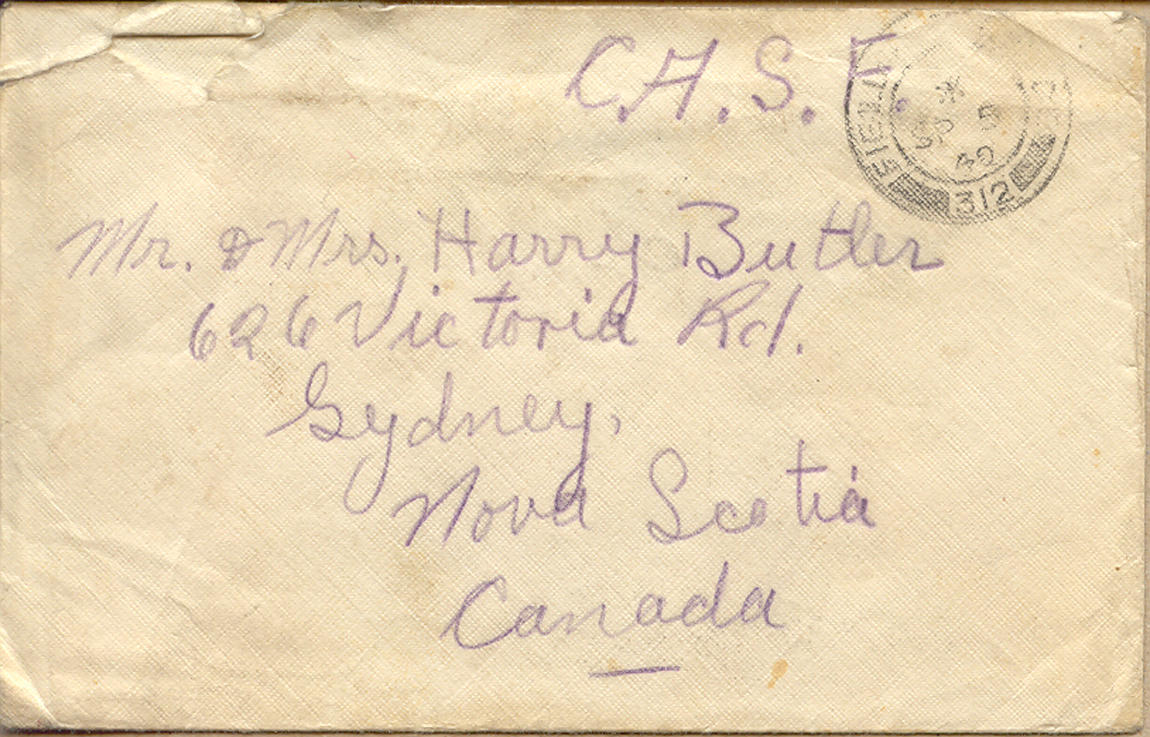 C.A.S.F.
FIELD
312
Mr. & Mrs. Harry Butler
626 Victoria Rd.
Sydney,
Nova Scotia
Canada